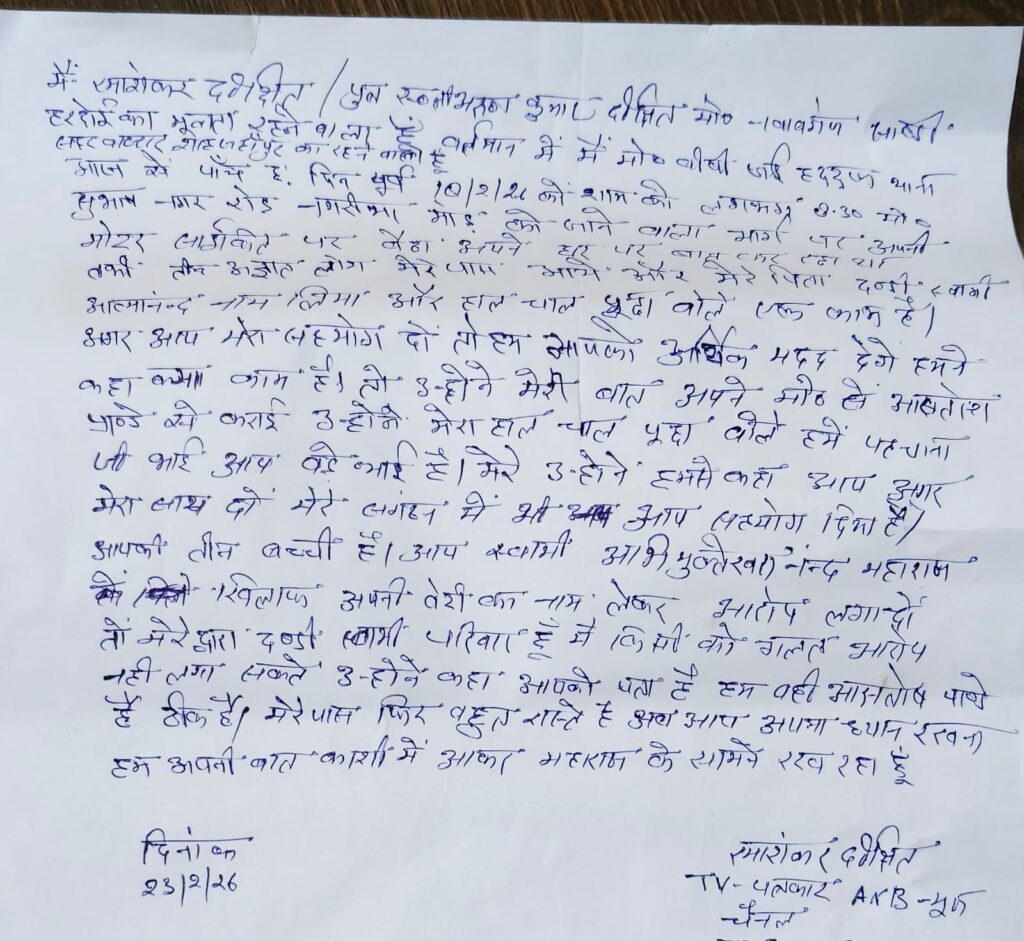 मैं रमाशंकर दीक्षित / पुत्र स्व० श्री अरुण कुमार दीक्षित मो०
हरदोई का मूलतः रहने वाला हूँ वर्तमान में मैं मो० बीबी जई हद्दफ थाना
सदर बाजार शाहजहांपुर का रहने वाला हूँ
आज से पाँच छः दिन पूर्व को शाम को लगभग
सुभाष नगर रोड मोड़ को जाने वाला मार्ग पर अपनी
मोटर साईकिल पर बैठा अपने घर पर बात कर रहा था
तभी तीन अज्ञात लोग मेरे पास आये और मेरे पिता दण्डी स्वामी
आत्मानन्द नाम लिया और हाल चाल पूछा बोले एक काम है।
अगर आप मेरा सहयोग दो तो हम आपको आर्थिक मदद देगे हमने
कहा क्या काम है। तो उन्होने मेरी बात अपने मो० से आसतोश
पाण्डे से कराई उन्होने मेरा हाल चाल पूछा बोले हमें पहचाना
जी भाई आप बड़े भाई है। मेरे उन्होने हमसे कहा आप अगर
मेरा साथ दो मेरे संगठन में भी आप सहयोग दिया है।
आपकी तीन बच्ची है। आप स्वामी अभिमुक्तेश्वरानन्द महाराज
के खिलाफ अपनी बेटी का नाम लेकर आरोप लगा दो
तो मेरे द्वारा दण्डी स्वामी परिवार हूँ मैं किसी को गलत आरोप
नही लगा सकते उन्होने कहा आपको पता है हम वही आसतोष पाण्डे
है ठीक है। मेरे पास फिर बहुत रास्ते है अब आप अपना ध्यान रखना
हम अपनी बात काशी में आकर महाराज के सामने रख रहा हूँ
दिनांक
23/2/26
रमाशंकर दीक्षित
TV-पत्रकार AKB-न्यूज
चैनल